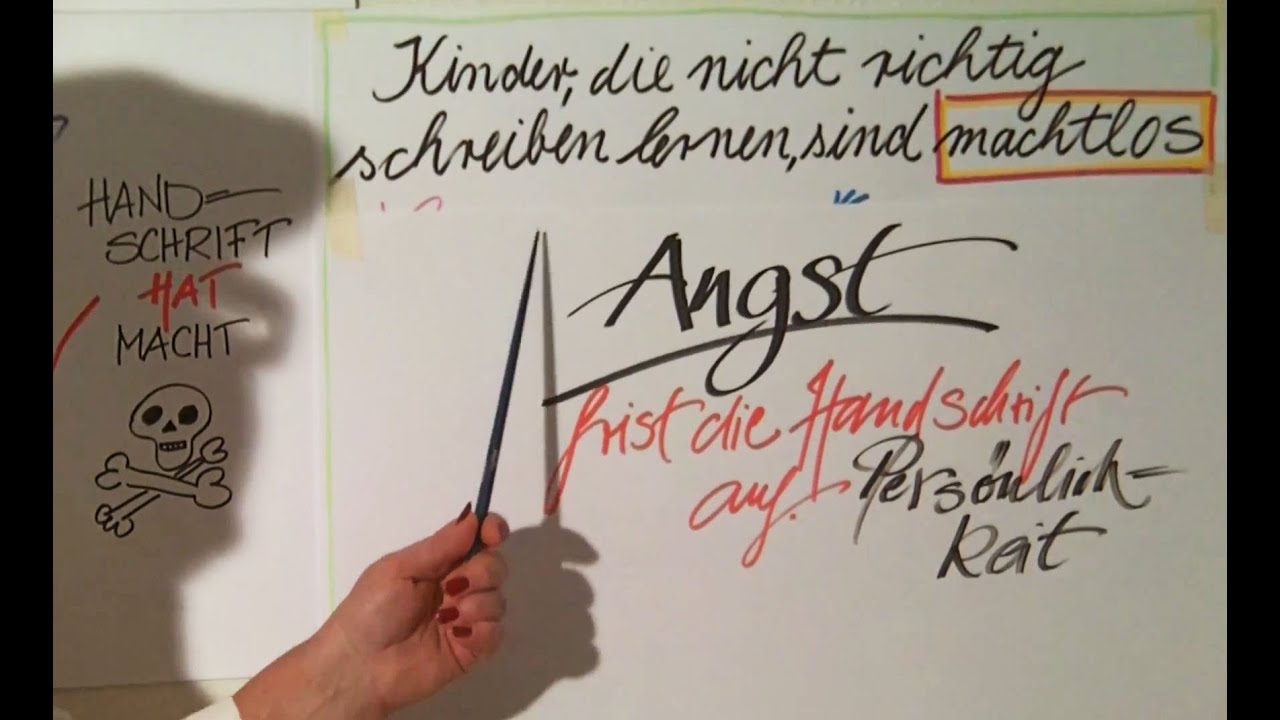 Kinder, die nicht richtig
schreiben lernen, sind machtlos
HAND=
SCHRIFT
HAT
MACHT
Angst
frist die Handschrift
auf. Persönlich=
keit